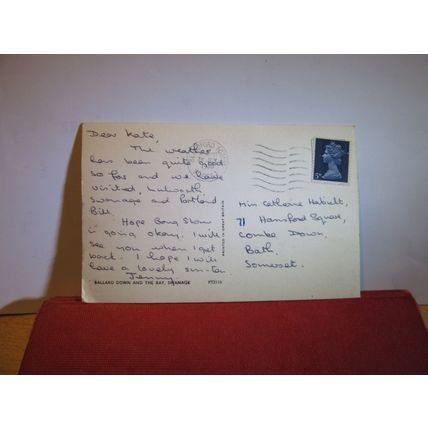 Dear Kate,
The weather
has been quite good
so far and we have
visited, Lulworth
Swanage and Portland
Bill.
Hope Bang Show
is going okay. I will
see you when I get
back. I hope I will
have a lovely sun-tan
Jenny
BALLARD DOWN AND THE BAY, SWANAGE
PT3110
PRINTED IN GREAT BRITAIN
5D
Miss Catherine
71 Hansford Square,
Combe Down,
Bath,
Somerset.